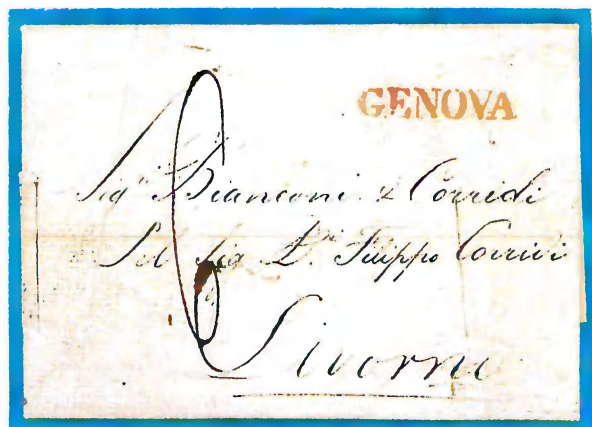 GENOVA
Sig.ri Bianconi & Corridi
Pel Sig. D. Filippo Corridi
Livorno
6